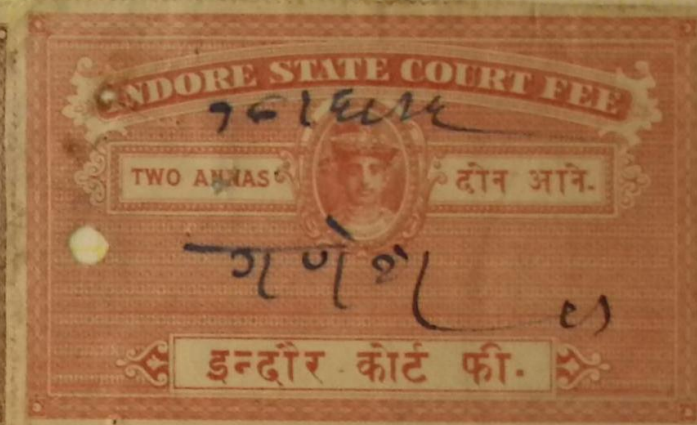 INDORE STATE COURT FEE
TWO ANNAS
दोन आने.
गणेश
इन्दौर कोर्ट फी.